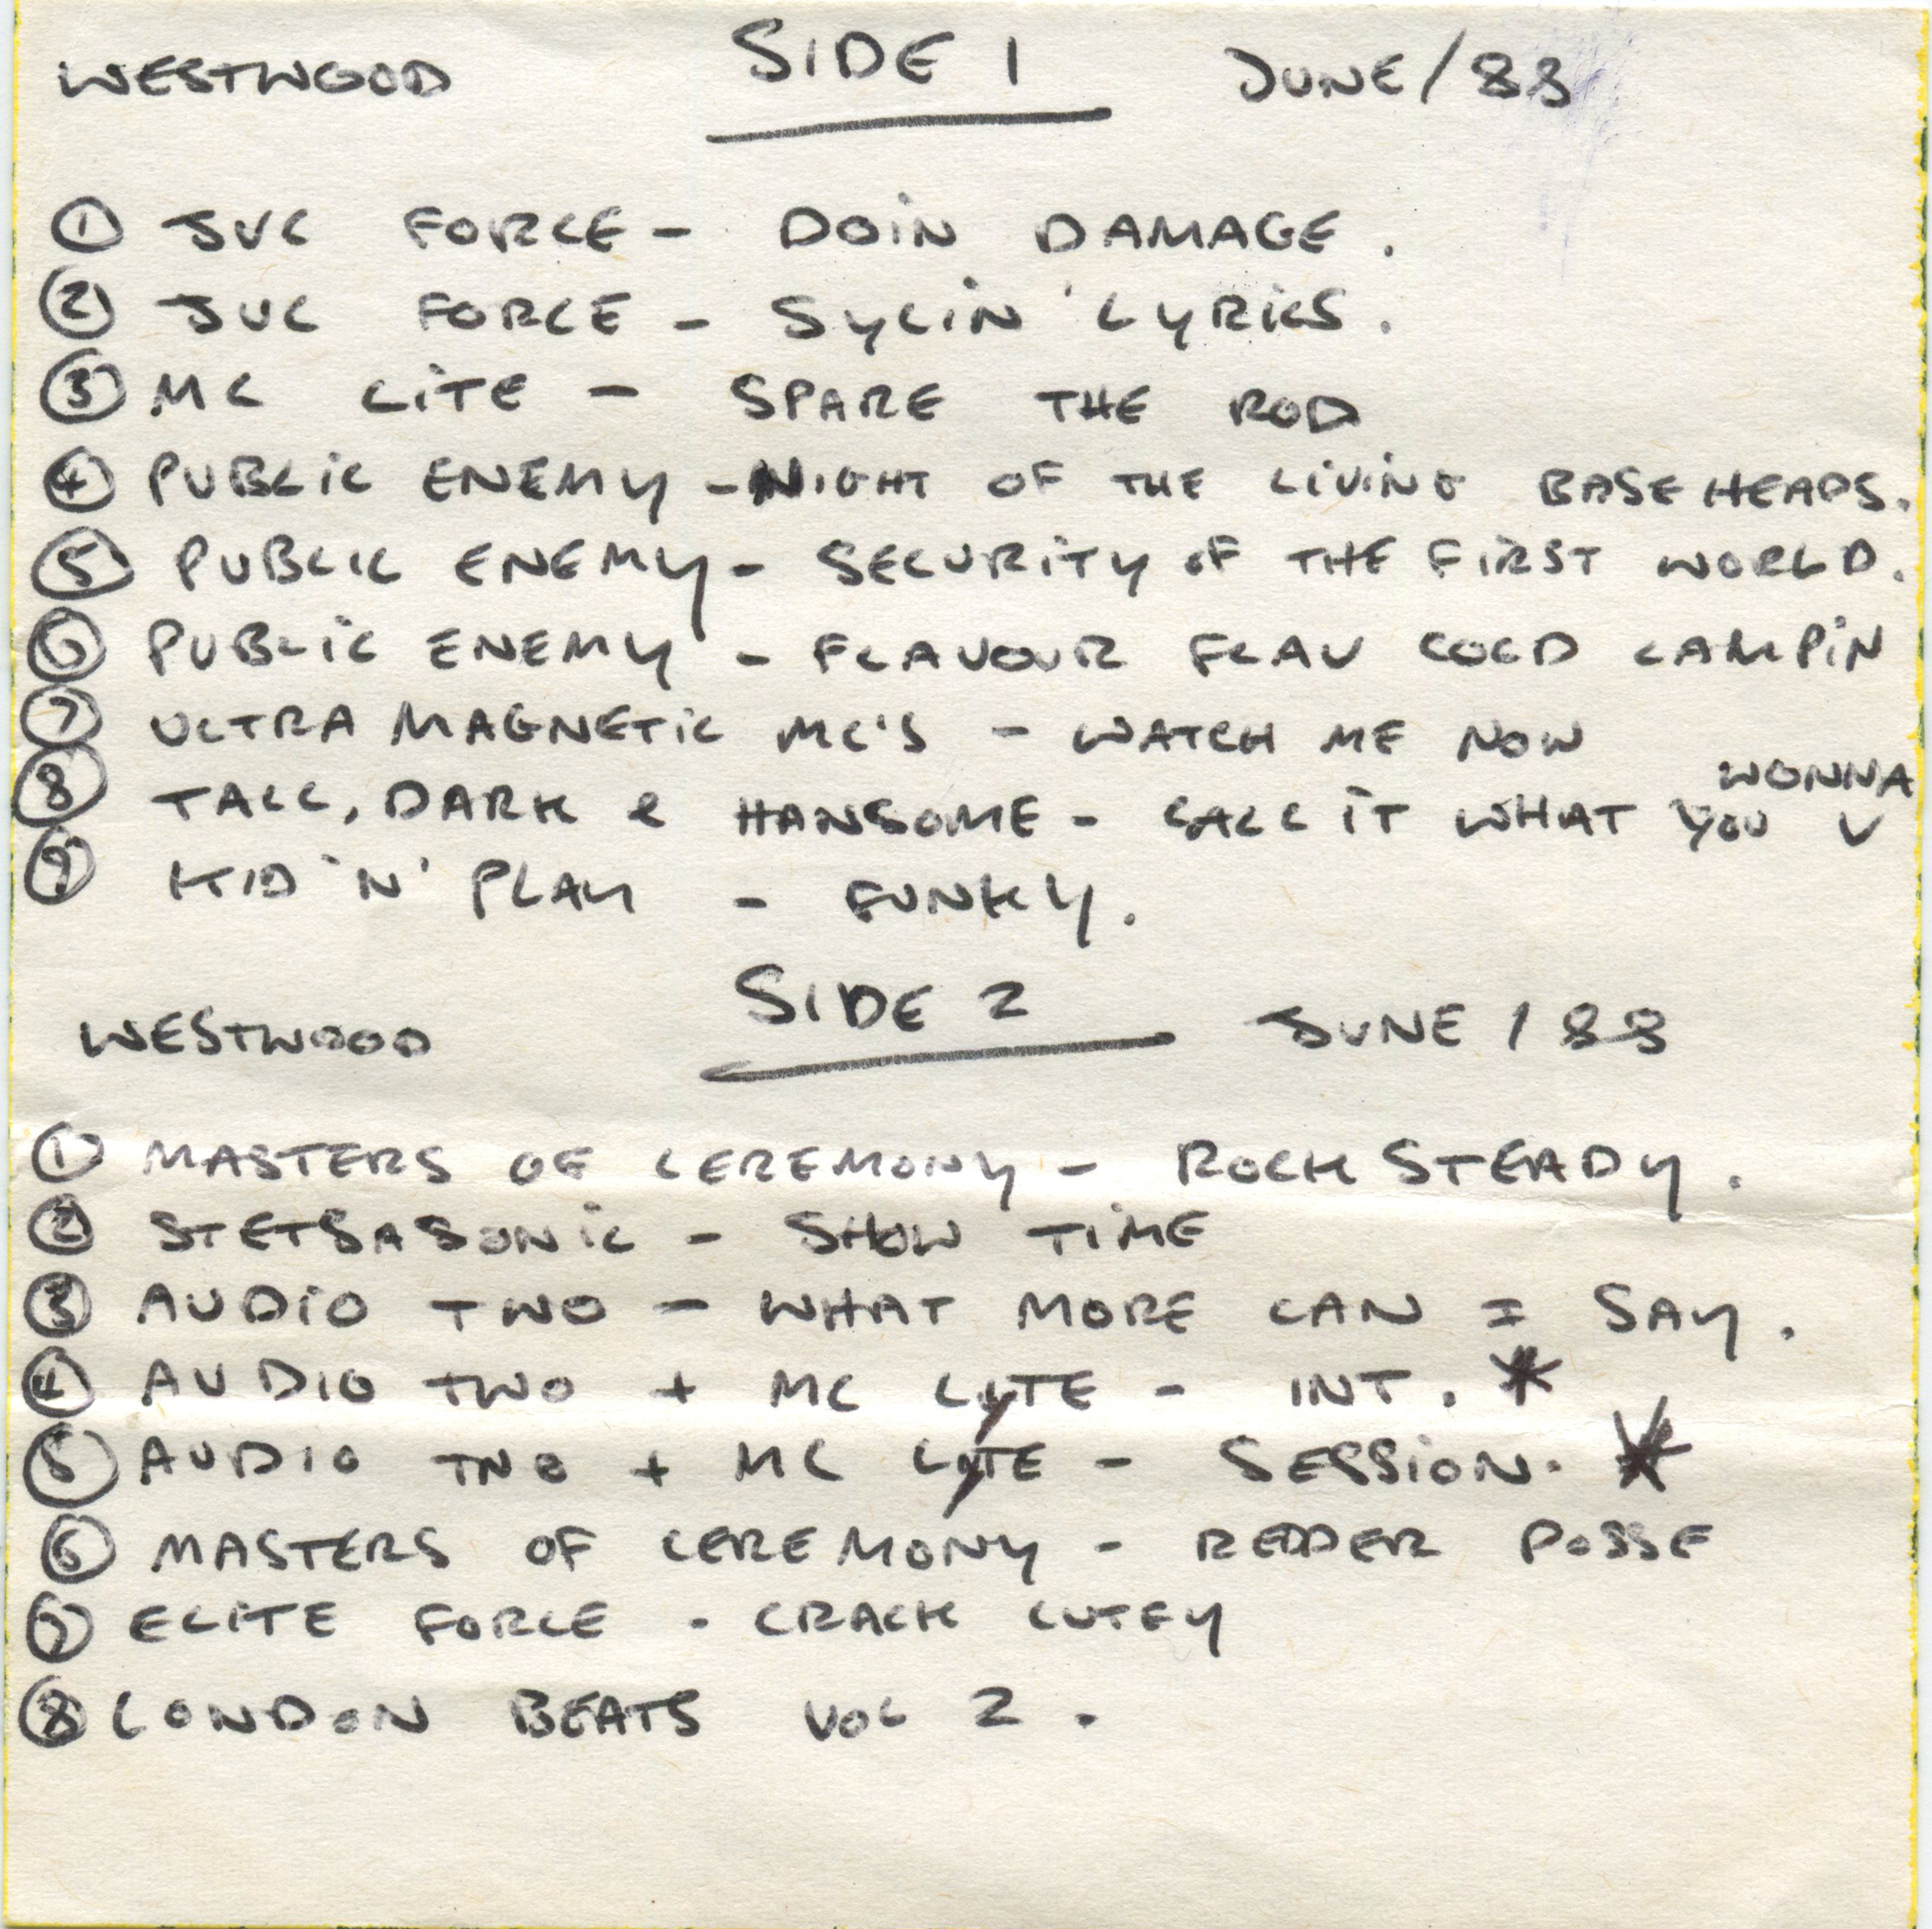 WESTWOOD SIDE 1 JUNE/88
① JVC FORCE - DOIN DAMAGE.
② JVC FORCE - SYLIN' LYRICS.
③ MC LITE - SPARE THE ROD
④ PUBLIC ENEMY - NIGHT OF THE LIVING BASE HEADS.
⑤ PUBLIC ENEMY - SECURITY OF THE FIRST WORLD.
⑥ PUBLIC ENEMY - FLAVOUR FLAV COLD LAMPIN
⑦ ULTRA MAGNETIC MC'S - WATCH ME NOW
⑧ TALL, DARK & HANSOME - CALL IT WHAT YOU WONNA
⑨ KID 'N' PLAY - FUNKY.
WESTWOOD SIDE 2 JUNE / 88
① MASTERS OF CEREMONY - ROCK STEADY.
② STETSASONIC - SHOW TIME
③ AUDIO TWO - WHAT MORE CAN I SAY.
④ AUDIO TWO + MC LYTE - INT. *
⑤ AUDIO TWO + MC LYTE - SESSION. *
⑥ MASTERS OF CEREMONY - REDDER POSSE
⑦ ELITE FORCE - CRACK CUTEY
⑧ LONDON BEATS VOL 2.